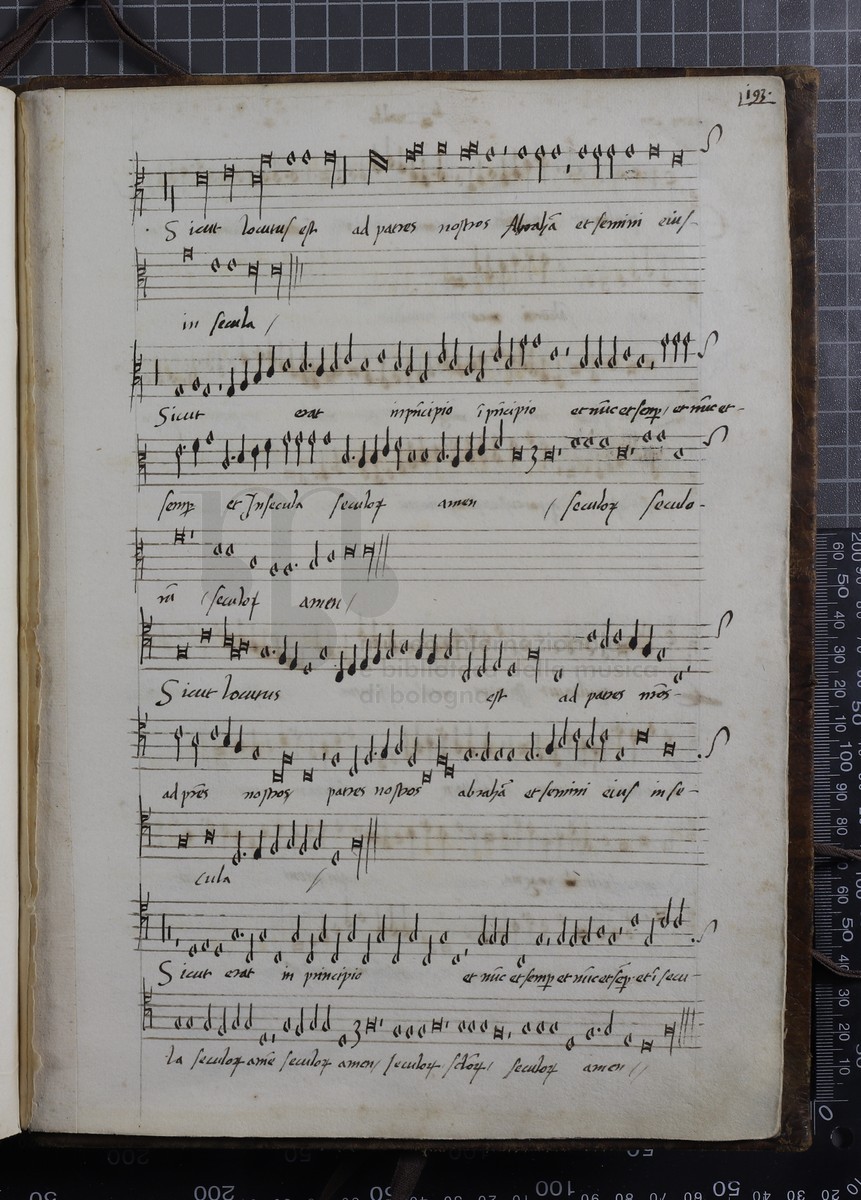 193.
Sicut locutus est ad patres nostros Abrahā et semini eius
in secula /
Sicut erat in pñcipio ī pñcipio et nūc et semp / et nūc et -
semp et Insecula seculoꝝ amen / seculoꝝ seculo-
rū / seculoꝝ amen /
Sicut locutus est ad patres nr̄os -
ad pr̄es nostros patres nostros abrahā et semini eius in se -
cula /
Sicut erat in principio et nūc et semp et nūc et sēp et ī secu -
la seculoꝝ amē seculoꝝ amen / seculoꝝ seculoꝝ amen //
museo internazionale
e biblioteca della musica
di bologna